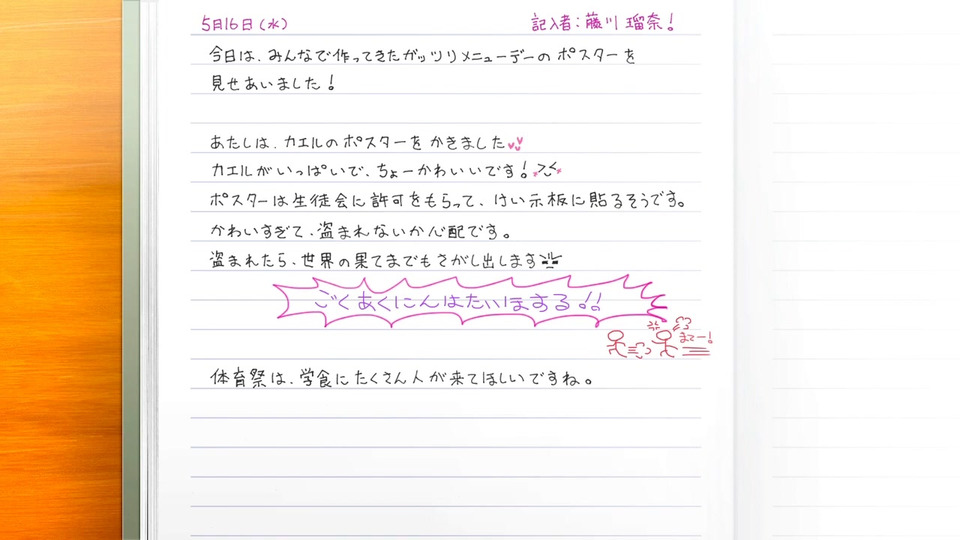 5月16日(水) 記入者:藤川 瑠奈!
今日は、みんなで作ってきたガッツリメニューデーのポスターを
見せあいました!
あたしは、カエルのポスターをかきました
カエルがいっぱいで、ちょーかわいいです!
ポスターは生徒会に許可をもらって、けい示板に貼るそうです。
かわいすぎて、盗まれないか心配です。
盗まれたら、世界の果てまでもさがし出します
ごくあくにんはたいほする!!
まてー!
体育祭は、学食にたくさん人が来てほしいですね。